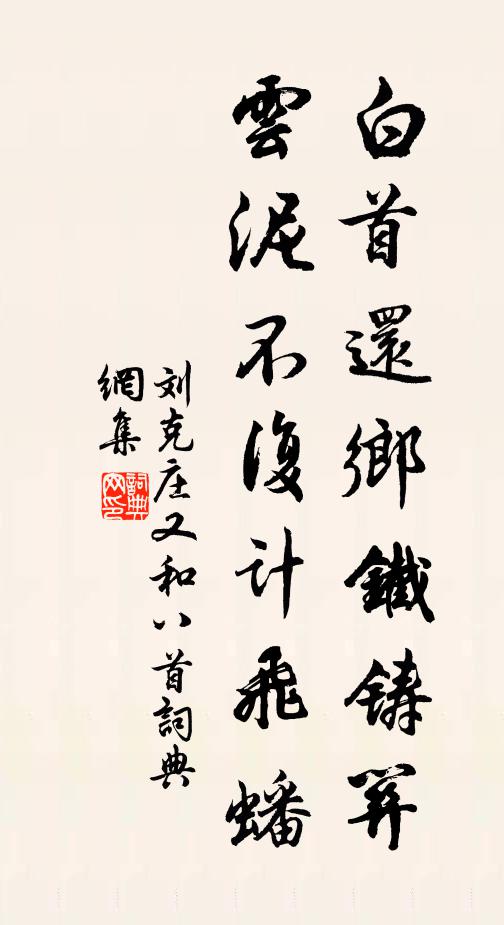 白首還鄉鐵鑄關
雲泥不復計飛蟠
刘克庄又和八首詞典
網集
詞典
网印